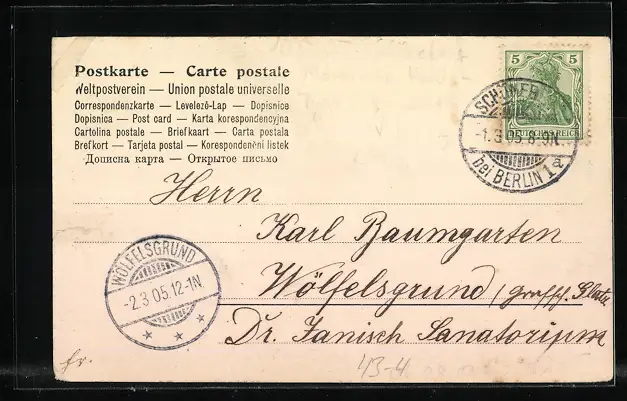 Postkarte — Carte postale
Weltpostverein — Union postale universelle
Correspondenzkarte — Levelező-Lap — Dopisnice
Dopisnica — Post card — Karta korespondencyjna
Cartolina postale — Briefkaart — Carta postala
Brefkort — Tarjeta postal — Korespondenční listek
Дописна карта — Открытое письмо
5 5
DEUTSCHES REICH
SCHÖNEBERG
-1.3.05.8-9N.
bei BERLIN 1 a
Herrn
Karl Baumgarten
Wölfelsgrund / Grafsch. Glatz
Dr. Janisch Sanatorium
WÖLFELSGRUND
-2.3.05.12-1N.
fr.
43-4